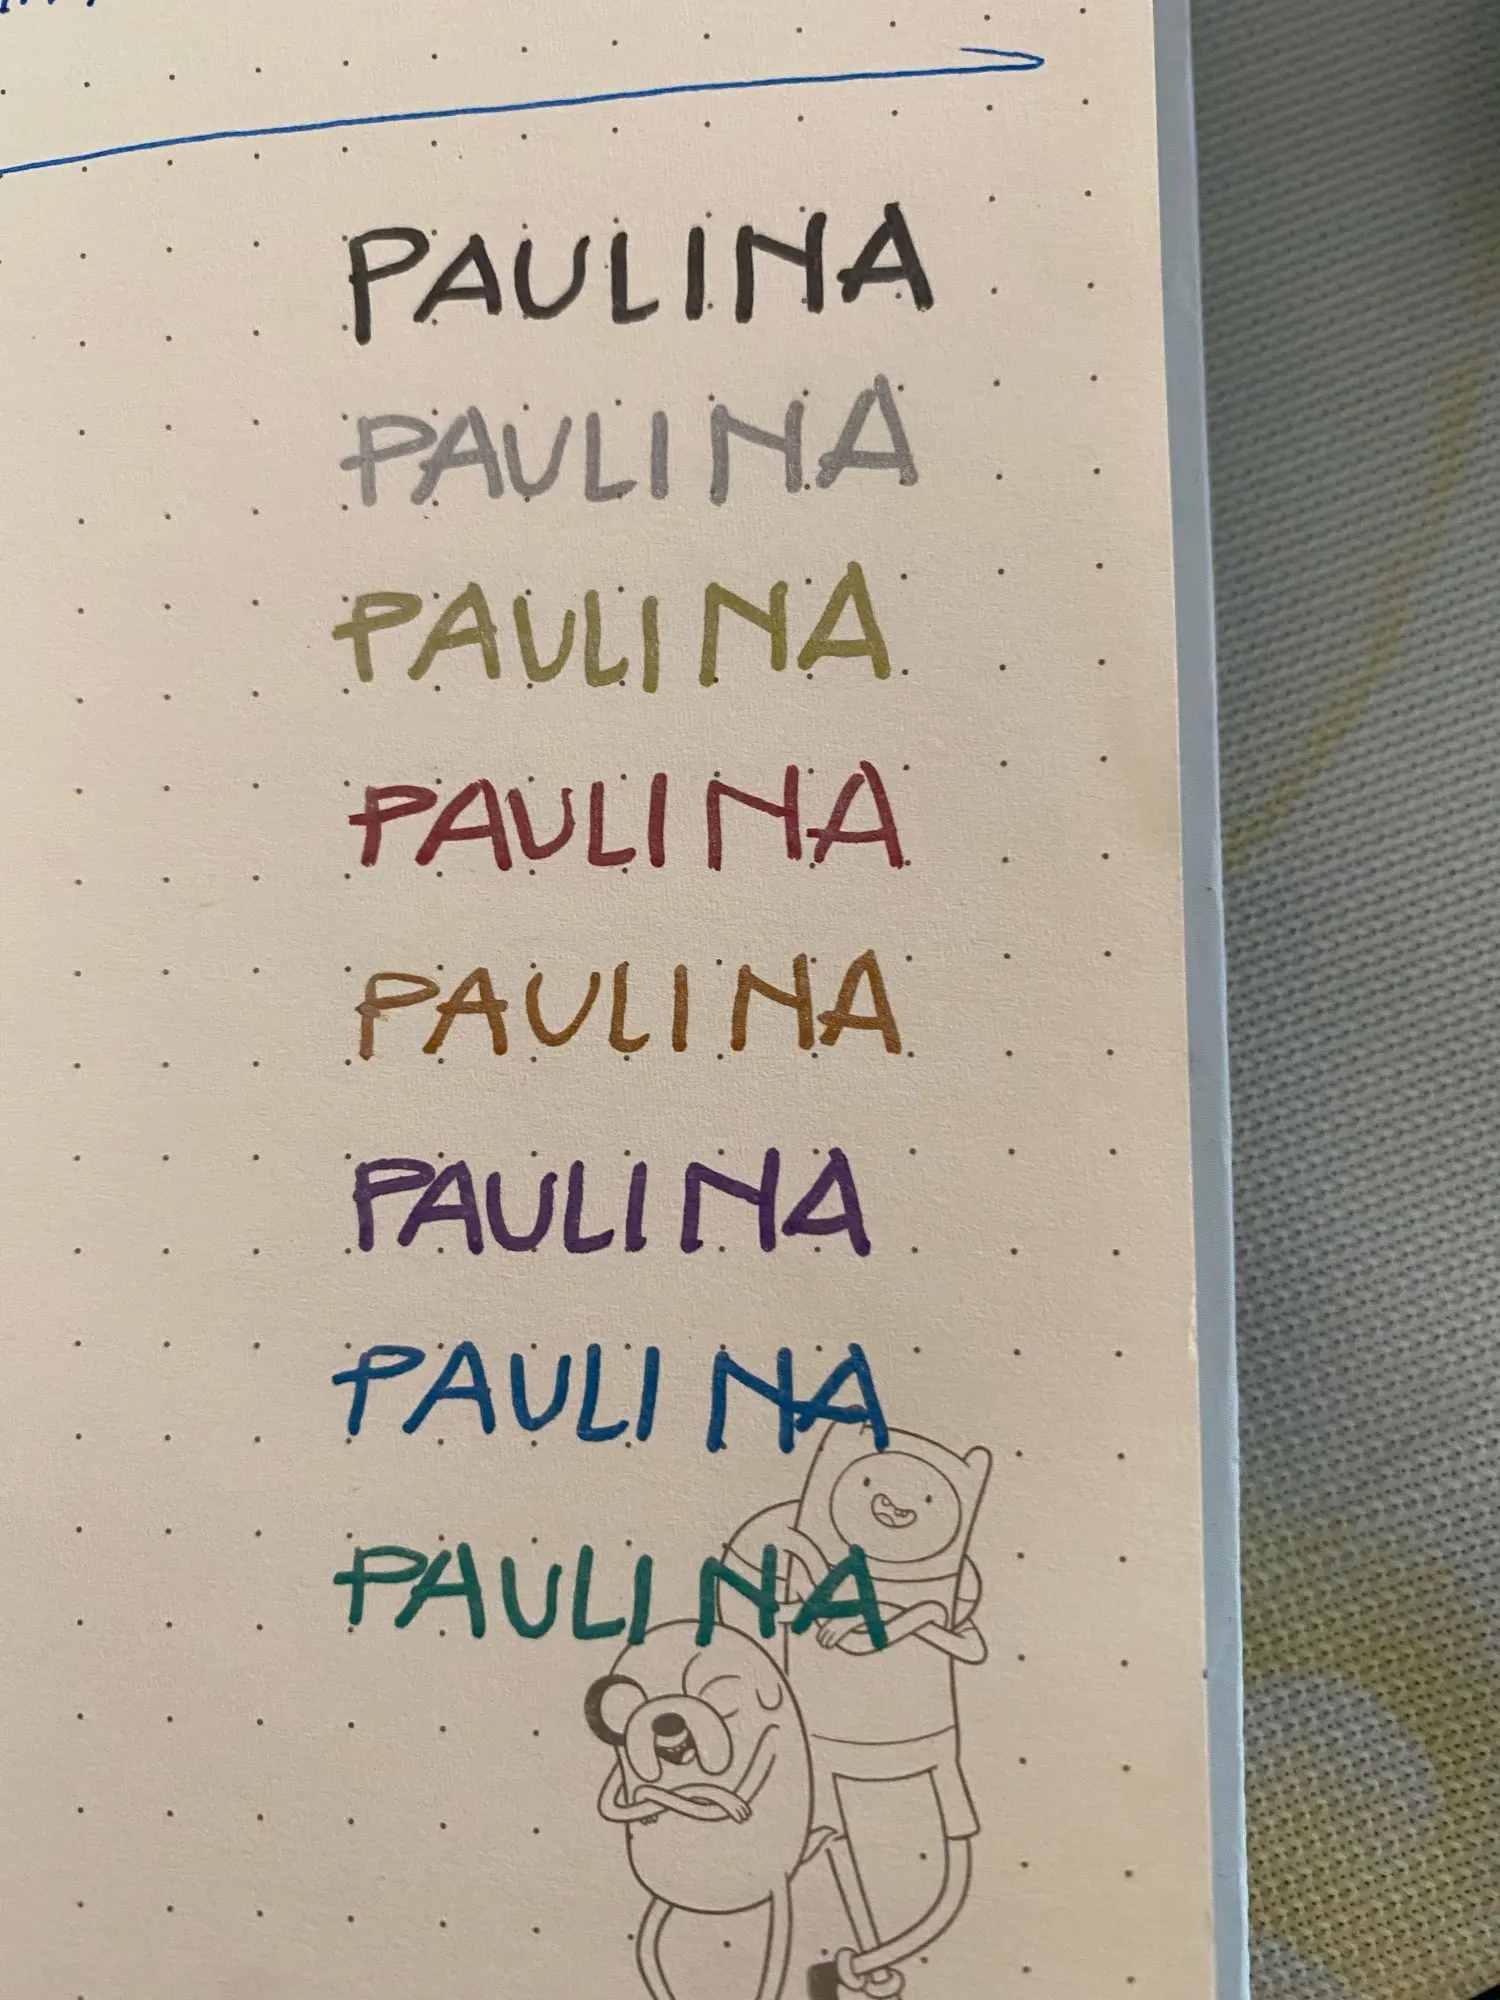 PAULINA
PAULINA
PAULINA
PAULINA
PAULINA
PAULINA
PAULINA
PAULINA